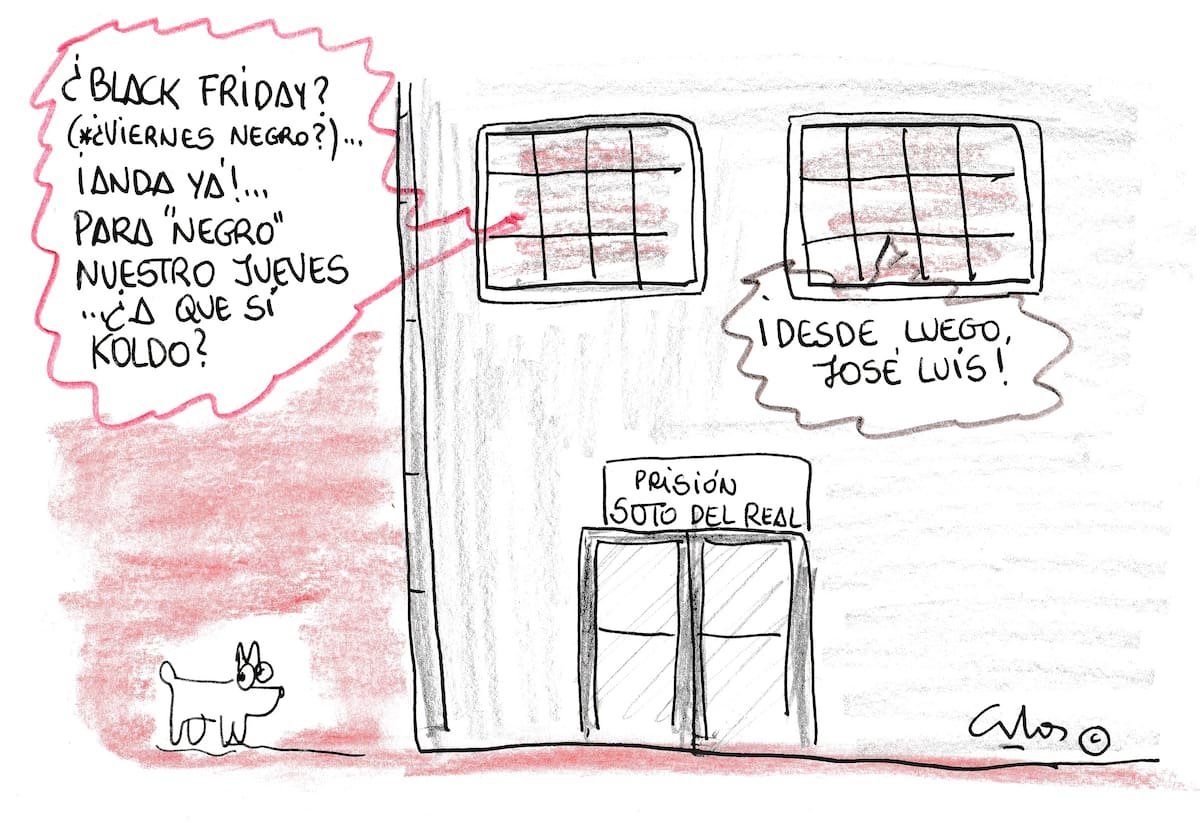 ¿BLACK FRIDAY?
(*¿VIERNES NEGRO?)...
¡ANDA YÁ!...
PARA "NEGRO"
NUESTRO JUEVES
...¿A QUE SÍ
KOLDO?
¡DESDE LUEGO,
JOSÉ LUÍS!
PRISIÓN
SOTO DEL REAL
©